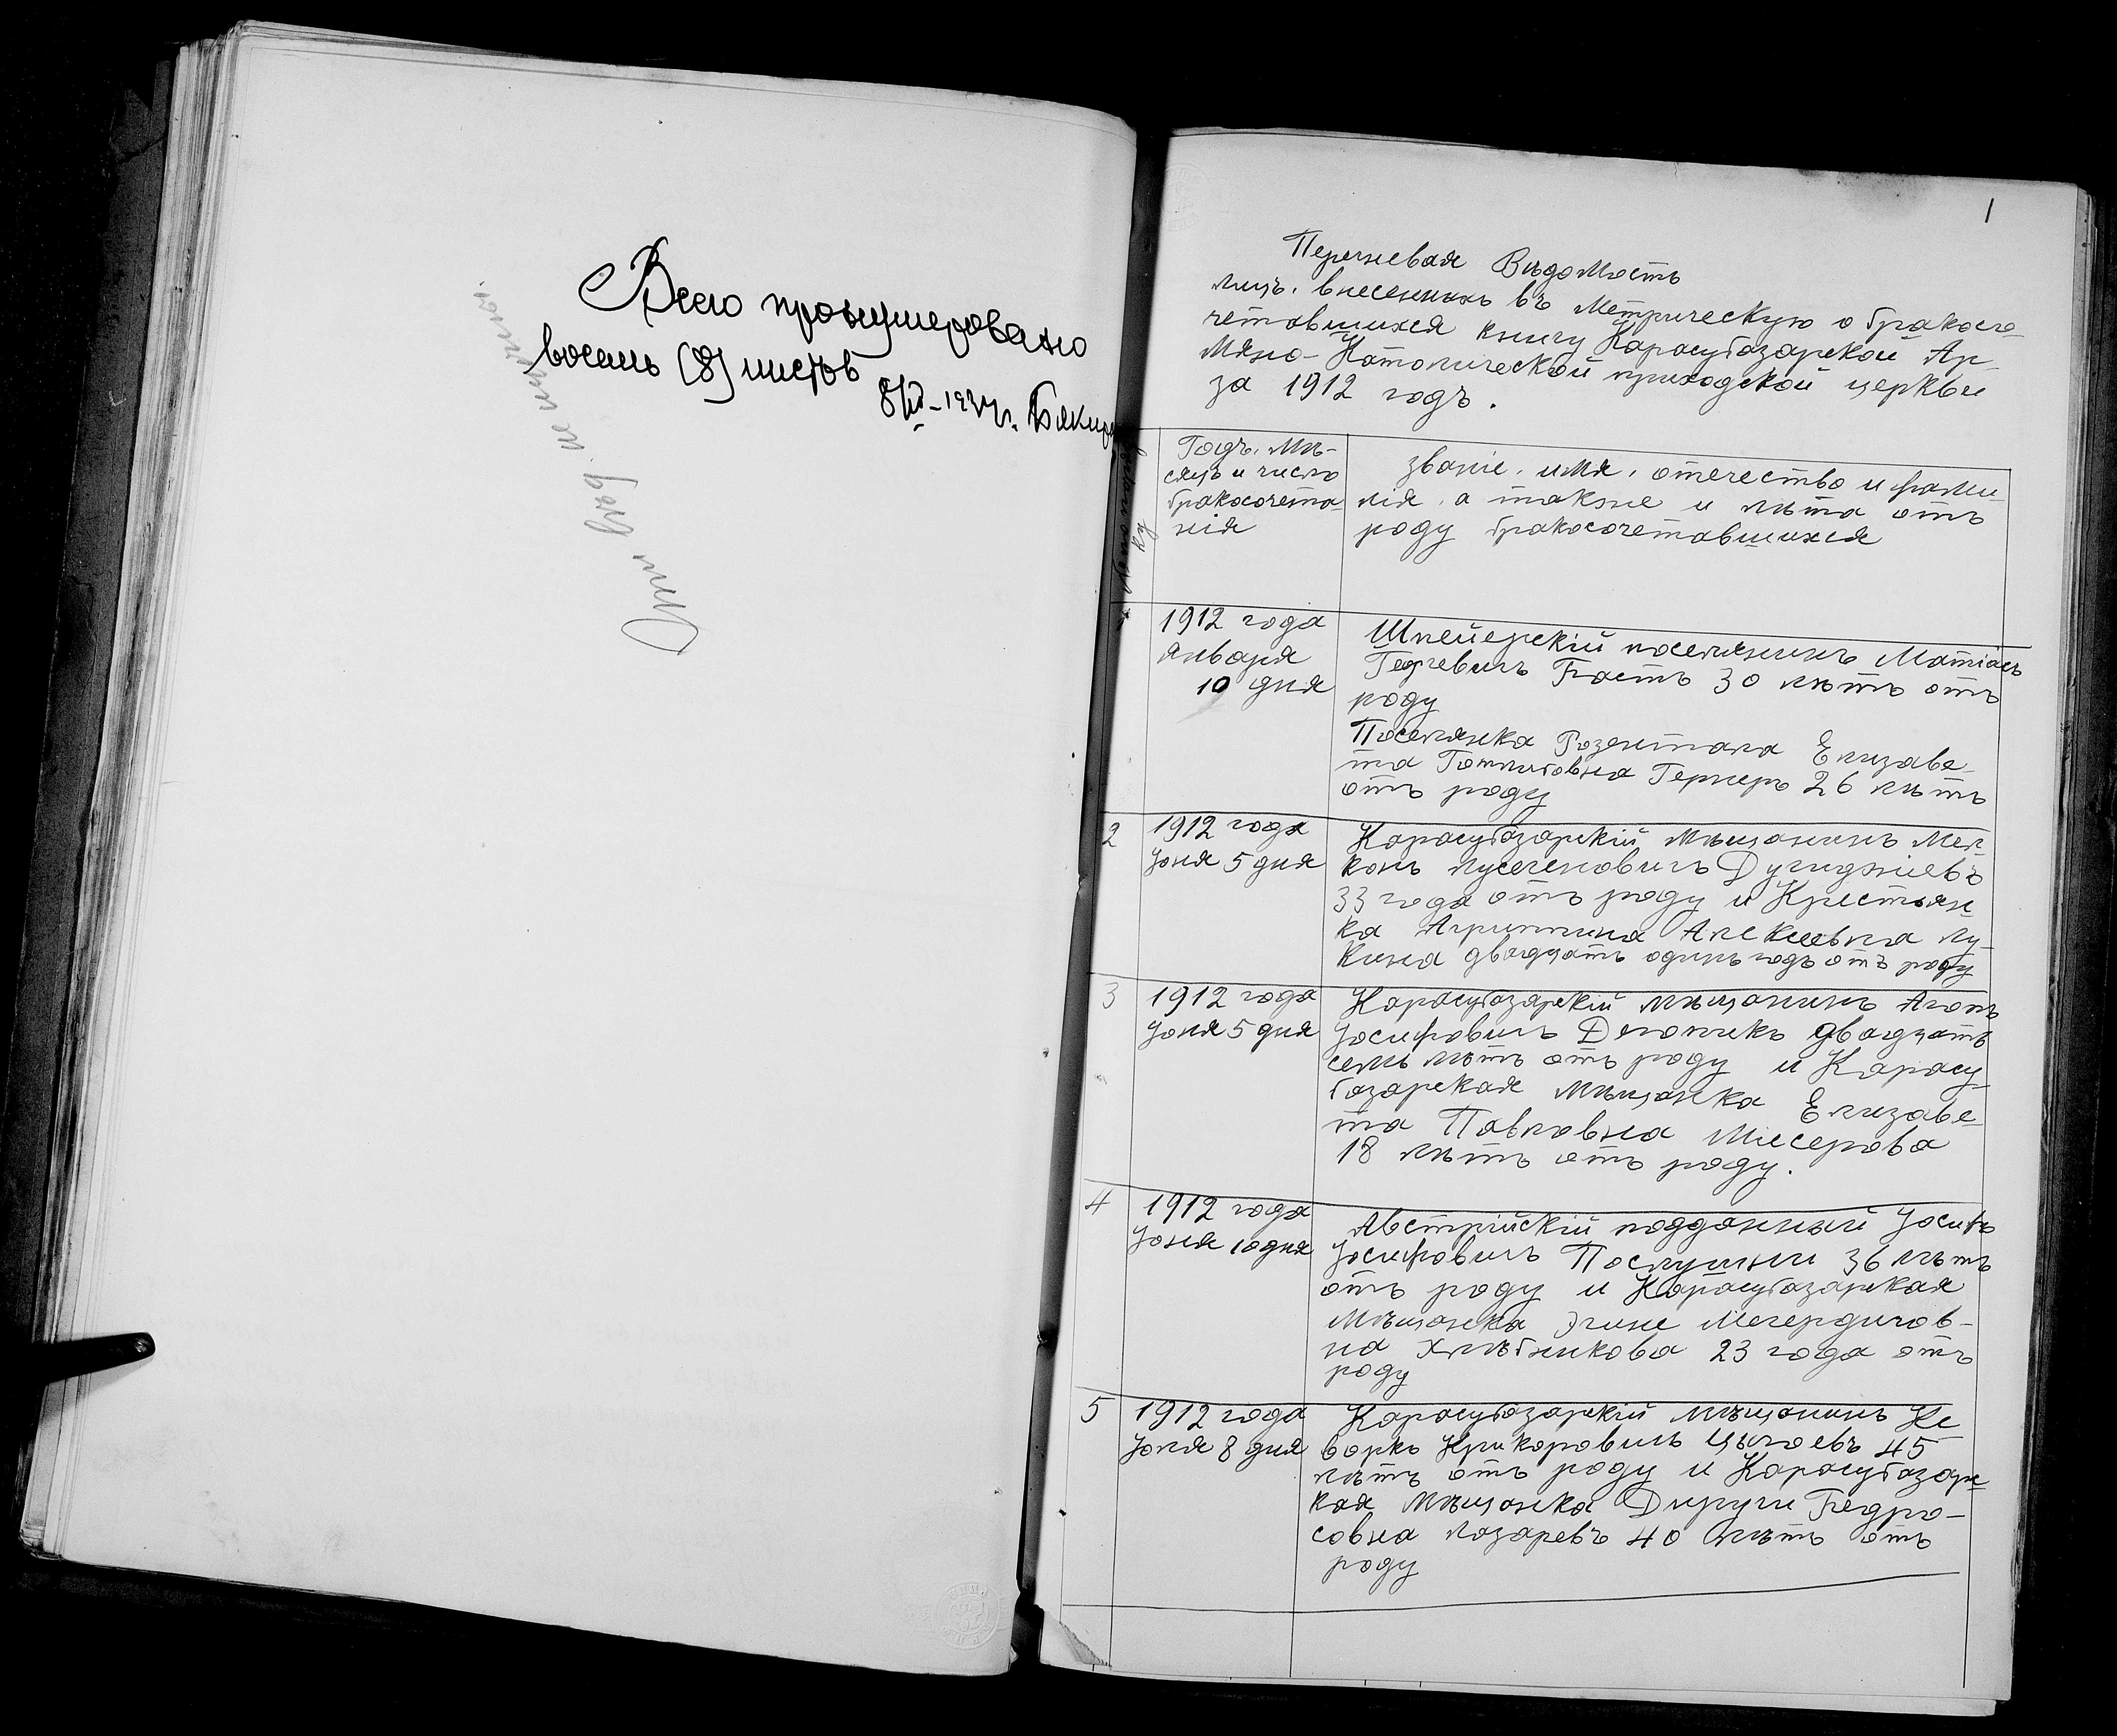 Всего пронумеровано
восемь (8) листов
8/VI-1934г.
1
Перечневая Вѣдомость
лицъ, внесенныхъ въ Метрическую о бракосо-
четавшихся книгу Карасубазарской Ар-
мяно-Католической приходской церкви
за 1912 годъ.
Годъ, мѣ-
сяцъ и число
бракосочета-
нія
званіе, имя, отечество и фами-
лія, а также и лѣта отъ
роду бракосочетавшихся
1912 года
Января
10 дня
Шпейерскій поселянинъ Матіасъ
Георгевичъ Гастъ 30 лѣтъ отъ
роду
Поселянка Розентала Елизаве-
та Готлибовна Гернеръ 26 лѣтъ
отъ роду
2
1912 года
Юня 5 дня
Карасубазарскій мѣщанинъ Мел-
конъ Лусегеновичъ
33 года отъ роду и Крестьян-
ка Агриппина Алексѣевна Лу-
кина двадцать одинъ годъ отъ роду
3
1912 года
Юня 5 дня
Карасубазарскій мѣщанинъ Агопъ
Юсифовичъ двадцать
семь лѣтъ отъ роду и Карасу-
базарская мѣщанка Елизаве-
та Павловна Мисерова
18 лѣтъ отъ роду.
4
1912 года
Юня 10 дня
Австрійскій подданный Юсифъ
Юсифовичъ Послушни 36 лѣтъ
отъ роду и Карасубазарская
мѣщанка Эгине Мегердичов-
на Хлѣбникова 23 года отъ
роду
5
1912 года
Юля 8 дня
Карасубазарскій мѣщанинъ Ке-
воркъ Крикоровичъ 45
лѣтъ отъ роду и Карасубазарс-
кая мѣщанка Дируги Бедро-
совна Лазаревъ 40 лѣтъ отъ
роду